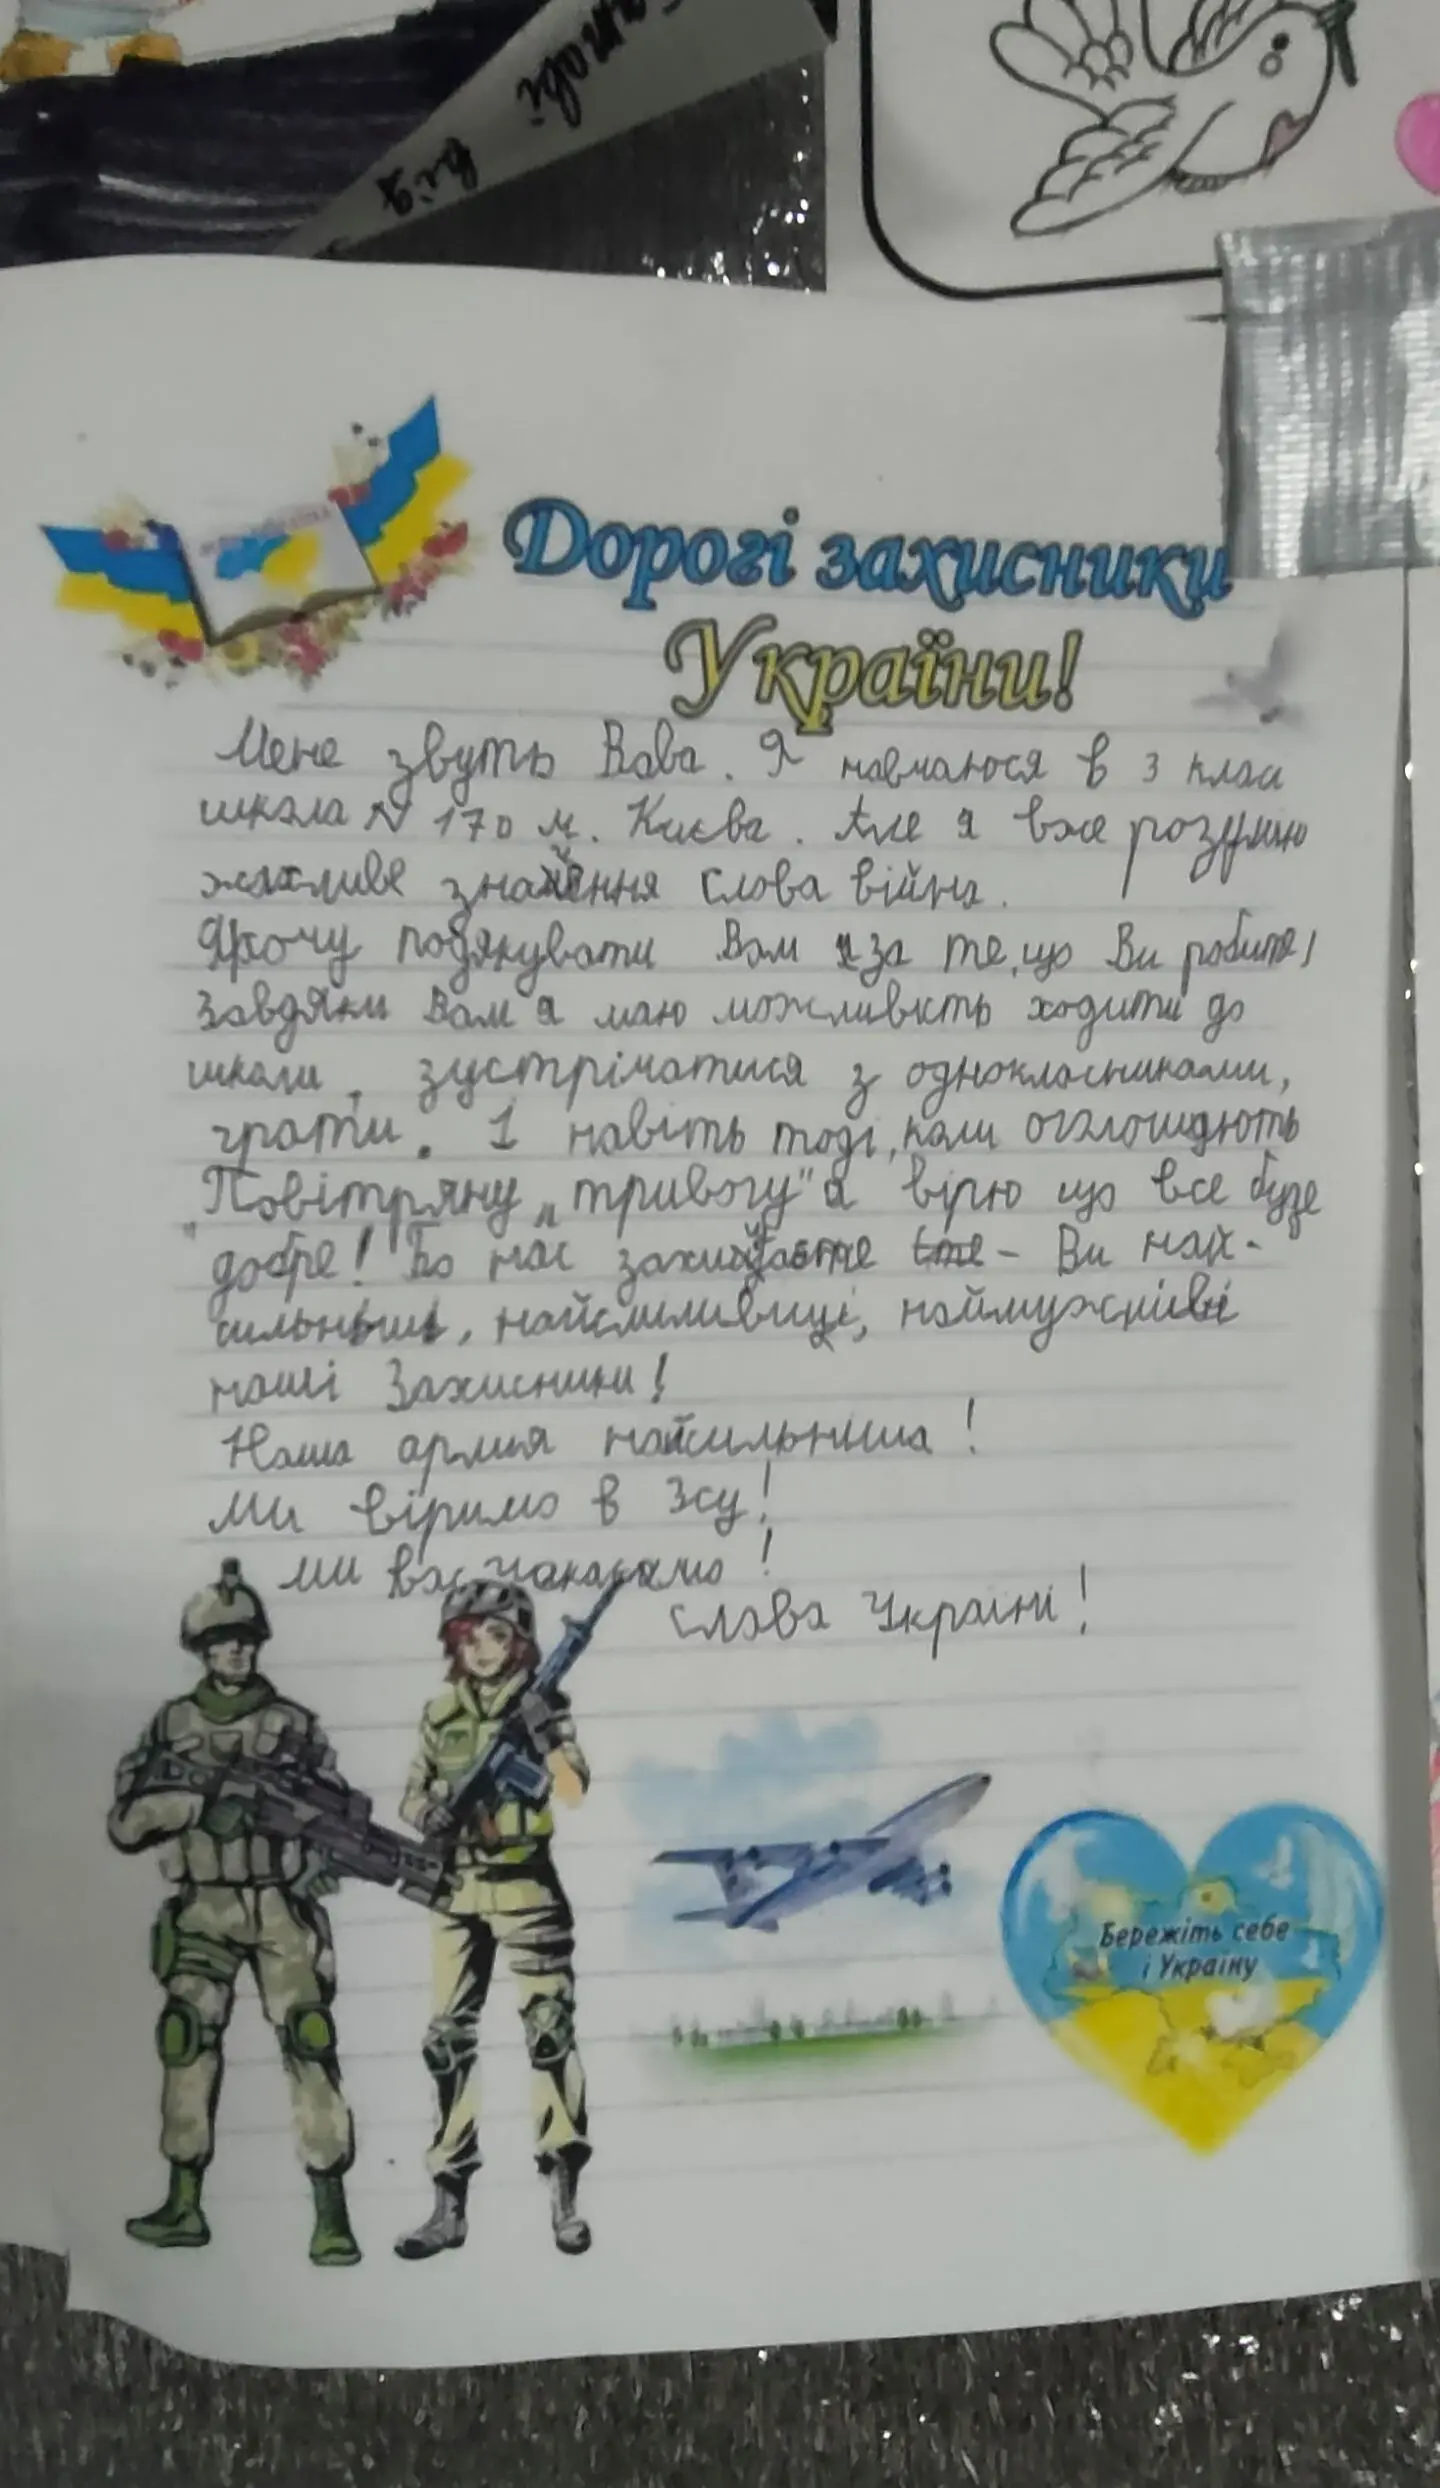 Дорогі захисники
України!
Мене звуть Вова. Я навчаюся в 3 класі
школа № 170 м. Києва. Але я вже розумію
жахливе значення слова війна.
Я хочу подякувати Вам за те, що Ви робите,
Завдяки Вам я маю можливість ходити до
школи, зустрічатися з однокласниками,
грати. І навіть тоді, коли оголошують
"Повітряну „тривогу" я вірю що все буде
добре! Бо нас захищаєте – Ви най-
сильніші, найсміливіші, наймужніві
наші Захисники!
Наша армія найсильніша!
Ми віримо в Зсу!
Ми вас чекаємо!
Слава Україні!
Бережіть себе
і Україну